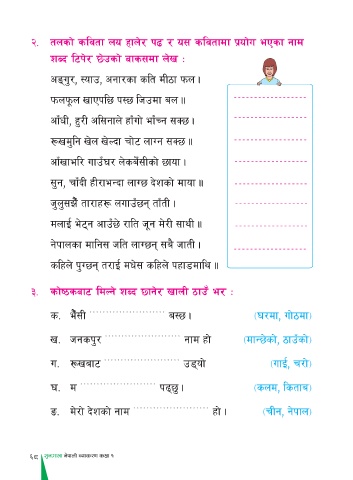 २. तलको कविता लय हालेर पढ र यस कवितामा प्रयोग भएका नाम
शब्द टिपेर छेउको बाकसमा लेख :
अङ्गुर, स्याउ, अनारका कति मीठा फल ।
फलफूल खाएपछि पस्छ जिउमा बल ॥
आँधी, हुरी असिनाले हाँगो भाँच्न सक्छ ।
रूखमुनि खेल खेल्दा चोट लाग्न सक्छ ॥
आँखाभरि गाउँघर लेकबेँसीको छाया ।
सुन, चाँदी हीराभन्दा लाग्छ देशको माया ॥
जुलुसझैँ ताराहरू लगाउँछन् ताँती ।
मलाई भेट्न आउँछे राति जून मेरी साथी ॥
नेपालका मानिस जति लाग्छन् सबै जाती ।
कहिले पुग्छन् तराई मधेस कहिले पहाडमाथि ॥
३. कोष्ठकबाट मिल्ने शब्द छानेर खाली ठाउँ भर :
क. भैँसी ........................ बस्छ । (घरमा, गोठमा)
ख. जनकपुर ........................ नाम हो (मान्छेको, ठाउँको)
ग. रूखबाट ........................ उड्यो (गाई, चरो)
घ. म ........................ पढ्छु । (कलम, किताब)
ङ. मेरो देशको नाम ........................ हो । (चीन, नेपाल)
नेपाली व्याकरण कक्षा १